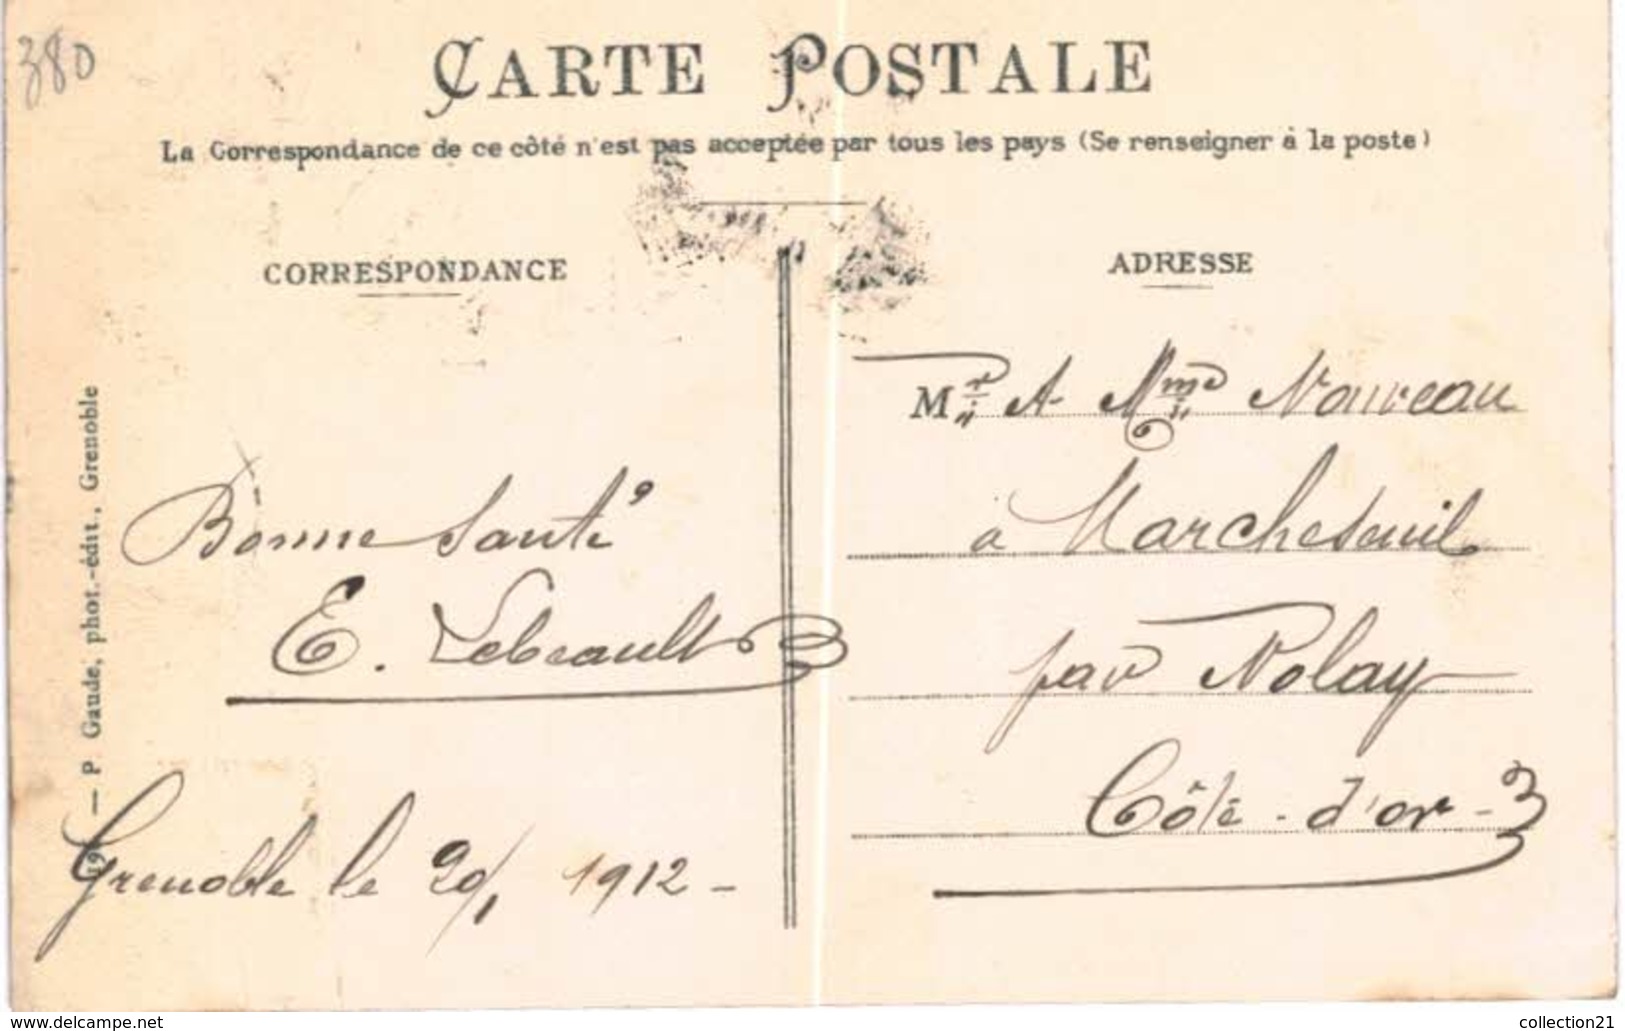 380
CARTE POSTALE
La Correspondance de ce côté n'est pas acceptée par tous les pays (Se renseigner à la poste)
CORRESPONDANCE
Bonne Santé
E. Lebeault
Grenoble le 20/1 1912 -
19 — P. Gaude, phot.-édit., Grenoble
ADRESSE
Mr et Mme Nauveau
à Marcheseuil
par Nolay
Côte-d'or-
www.delcampe.net
collection21